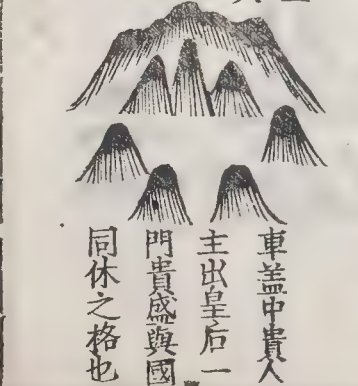 車盖中貴人
主出皇后一
門貴盛與國
同休之格也